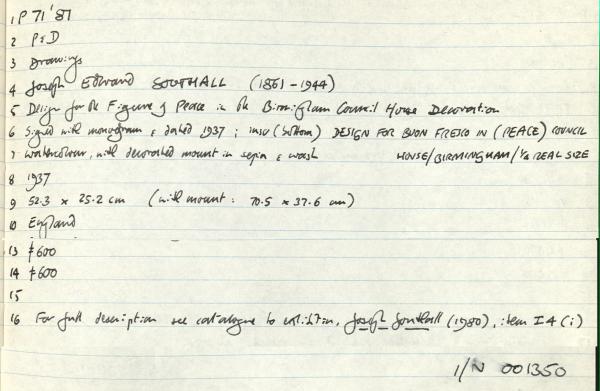 1 P 71'87
2 P & D
3 Drawings
4 Joseph Edward SOUTHALL (1861-1944)
5 Design for the Figure of Peace in the Birmingham Council House Decoration
6 Signed with monogram & dated 1937; insc (bottom) DESIGN FOR BUON FRESCO IN (PEACE) COUNCIL
HOUSE/BIRMINGHAM/¼ REAL SIZE
7 Watercolour, with decorated mount in sepia & wash
8 1937
9 52.3 x 25.2 cm (with mount: 70.5 x 37.6 cm)
10 England
13 £600
14 £600
15
16 For full description see catalogue to exhibition, Joseph Southall (1980), item I4 (i)
I/N 001350